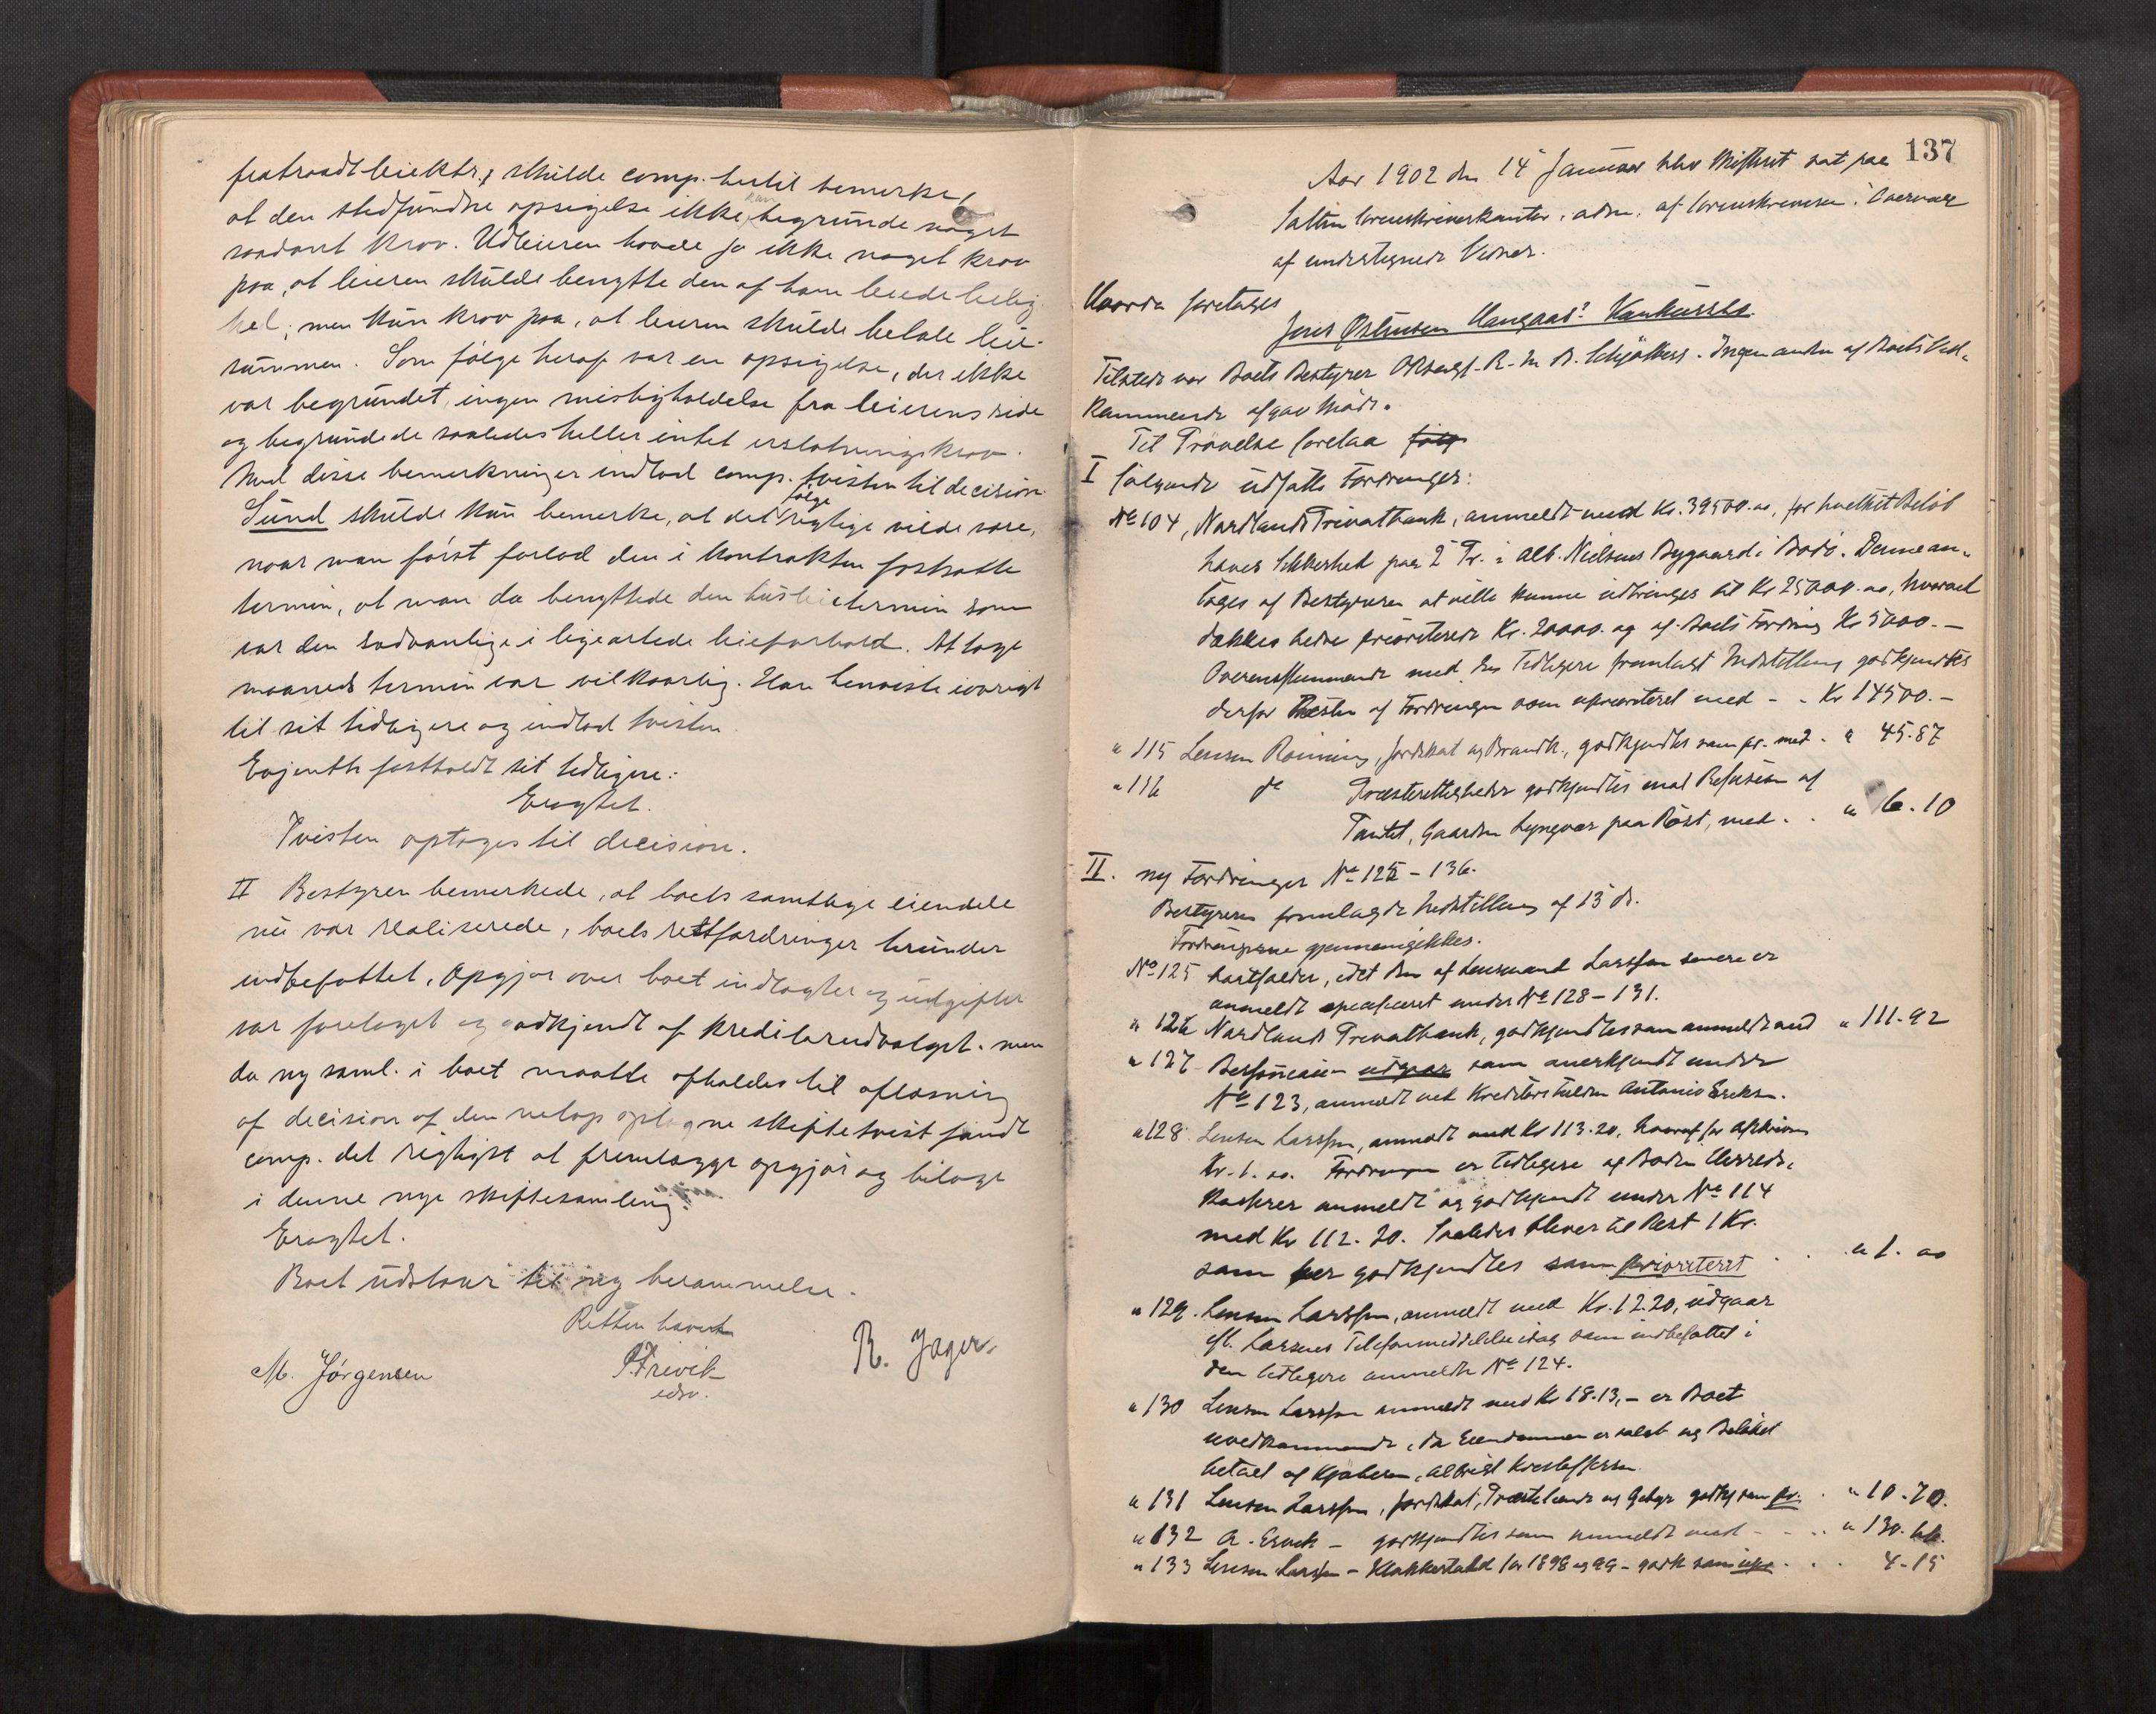 fratraadt leiektr., skulde comp. hertil bemerke,
at den stedfundne opsigelse ikke kan begrunde noget
saadant krav. Udleieren havde jo ikke noget krav
paa, at leieren skulde benytte den af ham leiede leilig
hed, men kun krav paa, at leieren skulde betale leie-
summen. Som følge heraf var en opsigelse, der ikke
var begrundet, ingen misligholdelse fra leierens side
og begrundede saaledes heller intet erstatningskrav.
Med disse bemerkninger indlod comp. tvisten til decision.
Sund skulde kun bemerke, at det følge rigtige vilde være,
naar man først forlod den i kontrakten fastsatte
termin, at man da benyttede den husleietermin som
var den sedvanlige i ligeartede leieforhold. At tage
maaneds termin var vilkaarlig. Han henviste iøvrigt
til sit tidligere og indlod tvisten.
fastholdt sit tidligere:
Eragtet.
Tvisten optages til decision.
II Bestyren bemerkede, at boets samtlige eiendele
nu var realiserede, boets restfordringer herunder
indbefattet. Opgjør over boet indtægter og udgifter
var foretaget og godkjendt af kreditorudvalget. men
da ny saml. i boet maatte afholdes til aflæsning
af decision af den netop optagne skiftetvist fandt
comp. det rigtigst at fremlægge opgjør og bilage
i denne nye skiftesamling.
Eragtet.
Boet udstaar til ny berammelse.
Retten hævet
M. Jørgensen
R. Jager
edsv.
137
Aar 1902 den 14 Januar blev Skifteret sat paa
Salten Sorenskriverkontor, adm. af Sorenskriveren i Overvær
af undertegnede Vidner.
Hvorda foretages
Jens Østensen Haugaas' Konkursbo.
Tilstede var Boets Bestyrer Ingen anden af Boets Ved-
kommende afgav Møde.
Til Prøvelse forelaa følg
I følgende udsatte Fordringer:
No 104, Nordlands Privatbank, anmeldt med Kr. 39500.00, for hvilket Beløb
haves Sikkerhed paa 2 Pr. i Alb. Nielsens Bygaard i Bodø. Denne an-
tages af Bestyreren at ville kunne udbringes til Kr 25000.00, hvorved
dækkes bedre prioriterede Kr. 20000. og af Boets Fordring Kr 5000.-
Overensstemmende med den tidligere fremlagt Indstilling godkjendtes
derfor Resten af Fordringen som uprioriteret med - . Kr 14500.-
" 115 Lensm Rønning, Jordskat og Brandk., godkjendtes som pr. med . " 45.87
" 116 do Præsterettigheder godkjendtes mod Refusion af
Gaarden Lyngvær paa Røst, med . . " 6.10
II. ny Fordringer No 125 - 136.
Bestyreren fremlagde Indstilling af 13 ds.
Fordringerne gjennemgikkes.
No 125 bortfalder, idet den af Lensmand Larssen senere er
anmeldt specificeret under No 128 - 131.
" 126 Nordlands Privatbank, godkjendtes som anmeldt med " 111.92
" 127 udgaar som anerkjendt under
No 123, anmeldt ved Antonio Eriksen.
" 128 Lensm Larssen, anmeldt med Kr 113.20, hvoraf for
Kr. 1.00. Fordringen er tidligere af Bodin Herreds-
kasserer anmeldt og godkjendt under No 114
med Kr 112.20. Saaledes bliver til Rest 1 Kr.
som her godkjendtes som prioriteret . . " 1.00
" 129. Lensm Larssen, anmeldt med Kr. 12.20, udgaar
efl. Larsens Telefonmeddelelse idag som indbefattet i
den tidligere anmeldte No 124.
" 130 Lensm Larssen anmeldt med Kr 18.13,- er Boet
uvedkommende, da Eiendommen er solgt og Beløbet
betalt af Kjøberen, Albrigt Kristoffersen.
" 131 Lensm Larssen, Jordskat, og Gebyr godkj som pr. . " 10.70.
" 132 A. godkjendtes som anmeldt med - - .. " 130.66.
" 133 Lensm Larssen - Klokkertold for 1898 og 99 - godk som upr . . . 4-15